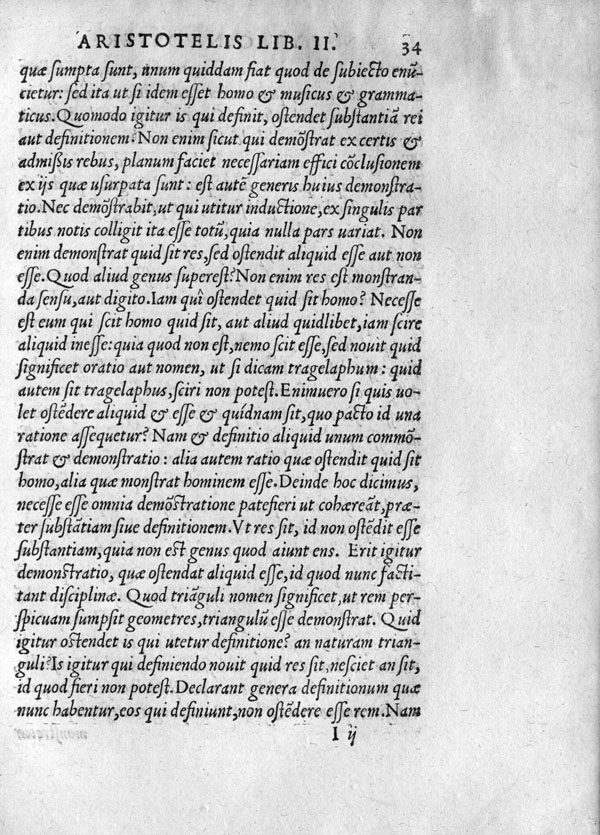 ARISTOTELIS LIB. II. 34
quæ sumpta sunt, unum quiddam fiat quod de subiecto enũ-
cietur: sed ita ut si idem esset homo & musicus & gramma-
ticus. Quomodo igitur is qui definit, ostendet substantiã rei
aut definitionem. Non enim sicut qui demõstrat ex certis &
admißis rebus, planum faciet necessariam effici cõclusionem
ex ijs quæ usurpata sunt: est autẽ generis huius demonstra-
tio. Nec demõstrabit, ut qui utitur inductione, ex singulis par
tibus notis colligit ita esse totũ, quia nulla pars uariat. Non
enim demonstrat quid sit res, sed ostendit aliquid esse aut non
esse. Quod aliud genus superest? Non enim res est monstran-
da sensu, aut digito. Iam quî ostendet quid sit homo? Necesse
est eum qui scit homo quid sit, aut aliud quidlibet, iam scire
aliquid inesse: quia quod non est, nemo scit esse, sed nouit quid
significet oratio aut nomen, ut si dicam tragelaphum: quid
autem sit tragelaphus, sciri non potest. Enimuero si quis uo-
let ostẽdere aliquid & esse & quidnam sit, quo pacto id una
ratione assequetur? Nam & definitio aliquid unum commõ-
strat & demonstratio: alia autem ratio quæ ostendit quid sit
homo, alia quæ monstrat hominem esse. Deinde hoc dicimus,
necesse esse omnia demõstratione patefieri ut cohæreãt, præ-
ter substãtiam siue definitionem. Vt res sit, id non ostẽdit esse
substantiam, quia non est genus quod aiunt ens. Erit igitur
demonstratio, quæ ostendat aliquid esse, id quod nunc facti-
tant disciplinæ. Quod triãguli nomen significet, ut rem per-
spicuam sumpsit geometres, triangulũ esse demonstrat. Quid
igitur ostendet is qui utetur definitione? an naturam trian-
guli? Is igitur qui definiendo nouit quid res sit, nesciet an sit,
id quod fieri non potest. Declarant genera definitionum quæ
nunc habentur, eos qui definiunt, non ostẽdere esse rem. Nam
I ij